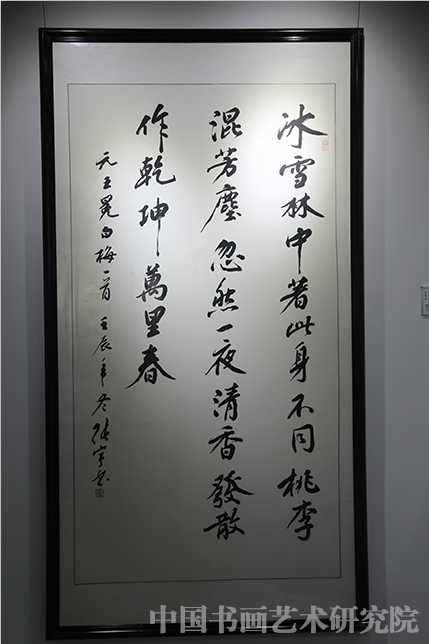 冰雪林中著此身不同桃李
混芳塵忽然一夜清香發散
作乾坤萬里春
元王冕白梅一首 壬辰年冬張宇書
中国书画艺术研究院